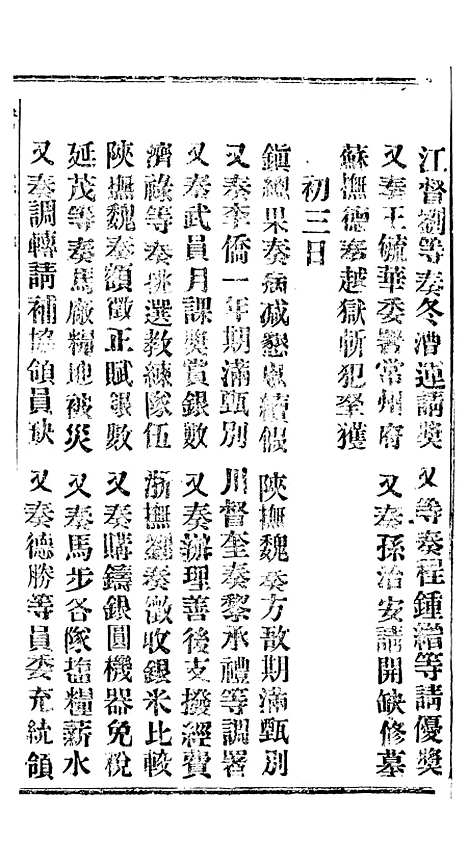 江督劉等奏冬漕運請獎
又等奏程鍾繒等請優獎
又奏王毓華委署常州府
又奏孫治安請開缺修墓
蘇撫德奏越獄斬犯孥獲
初三日
鎮總果奏病減懇恩續假
陝撫魏奏方敔期滿甄別
又奏李僑一年期滿甄別
川督奎奏黎承禮等調署
又奏武員月課獎賞銀數
又奏辦理善後支撥經費
濟祿等奏挑選教練隊伍
浙撫劉奏徵收銀米比較
陝撫魏奏額徵正賦銀數
又奏購鑄銀圓機器免稅
延茂等奏馬廠糧地被災
又奏馬步各隊塩糧薪水
又奏調轉請補協領員缺
又奏德勝等員委充統領